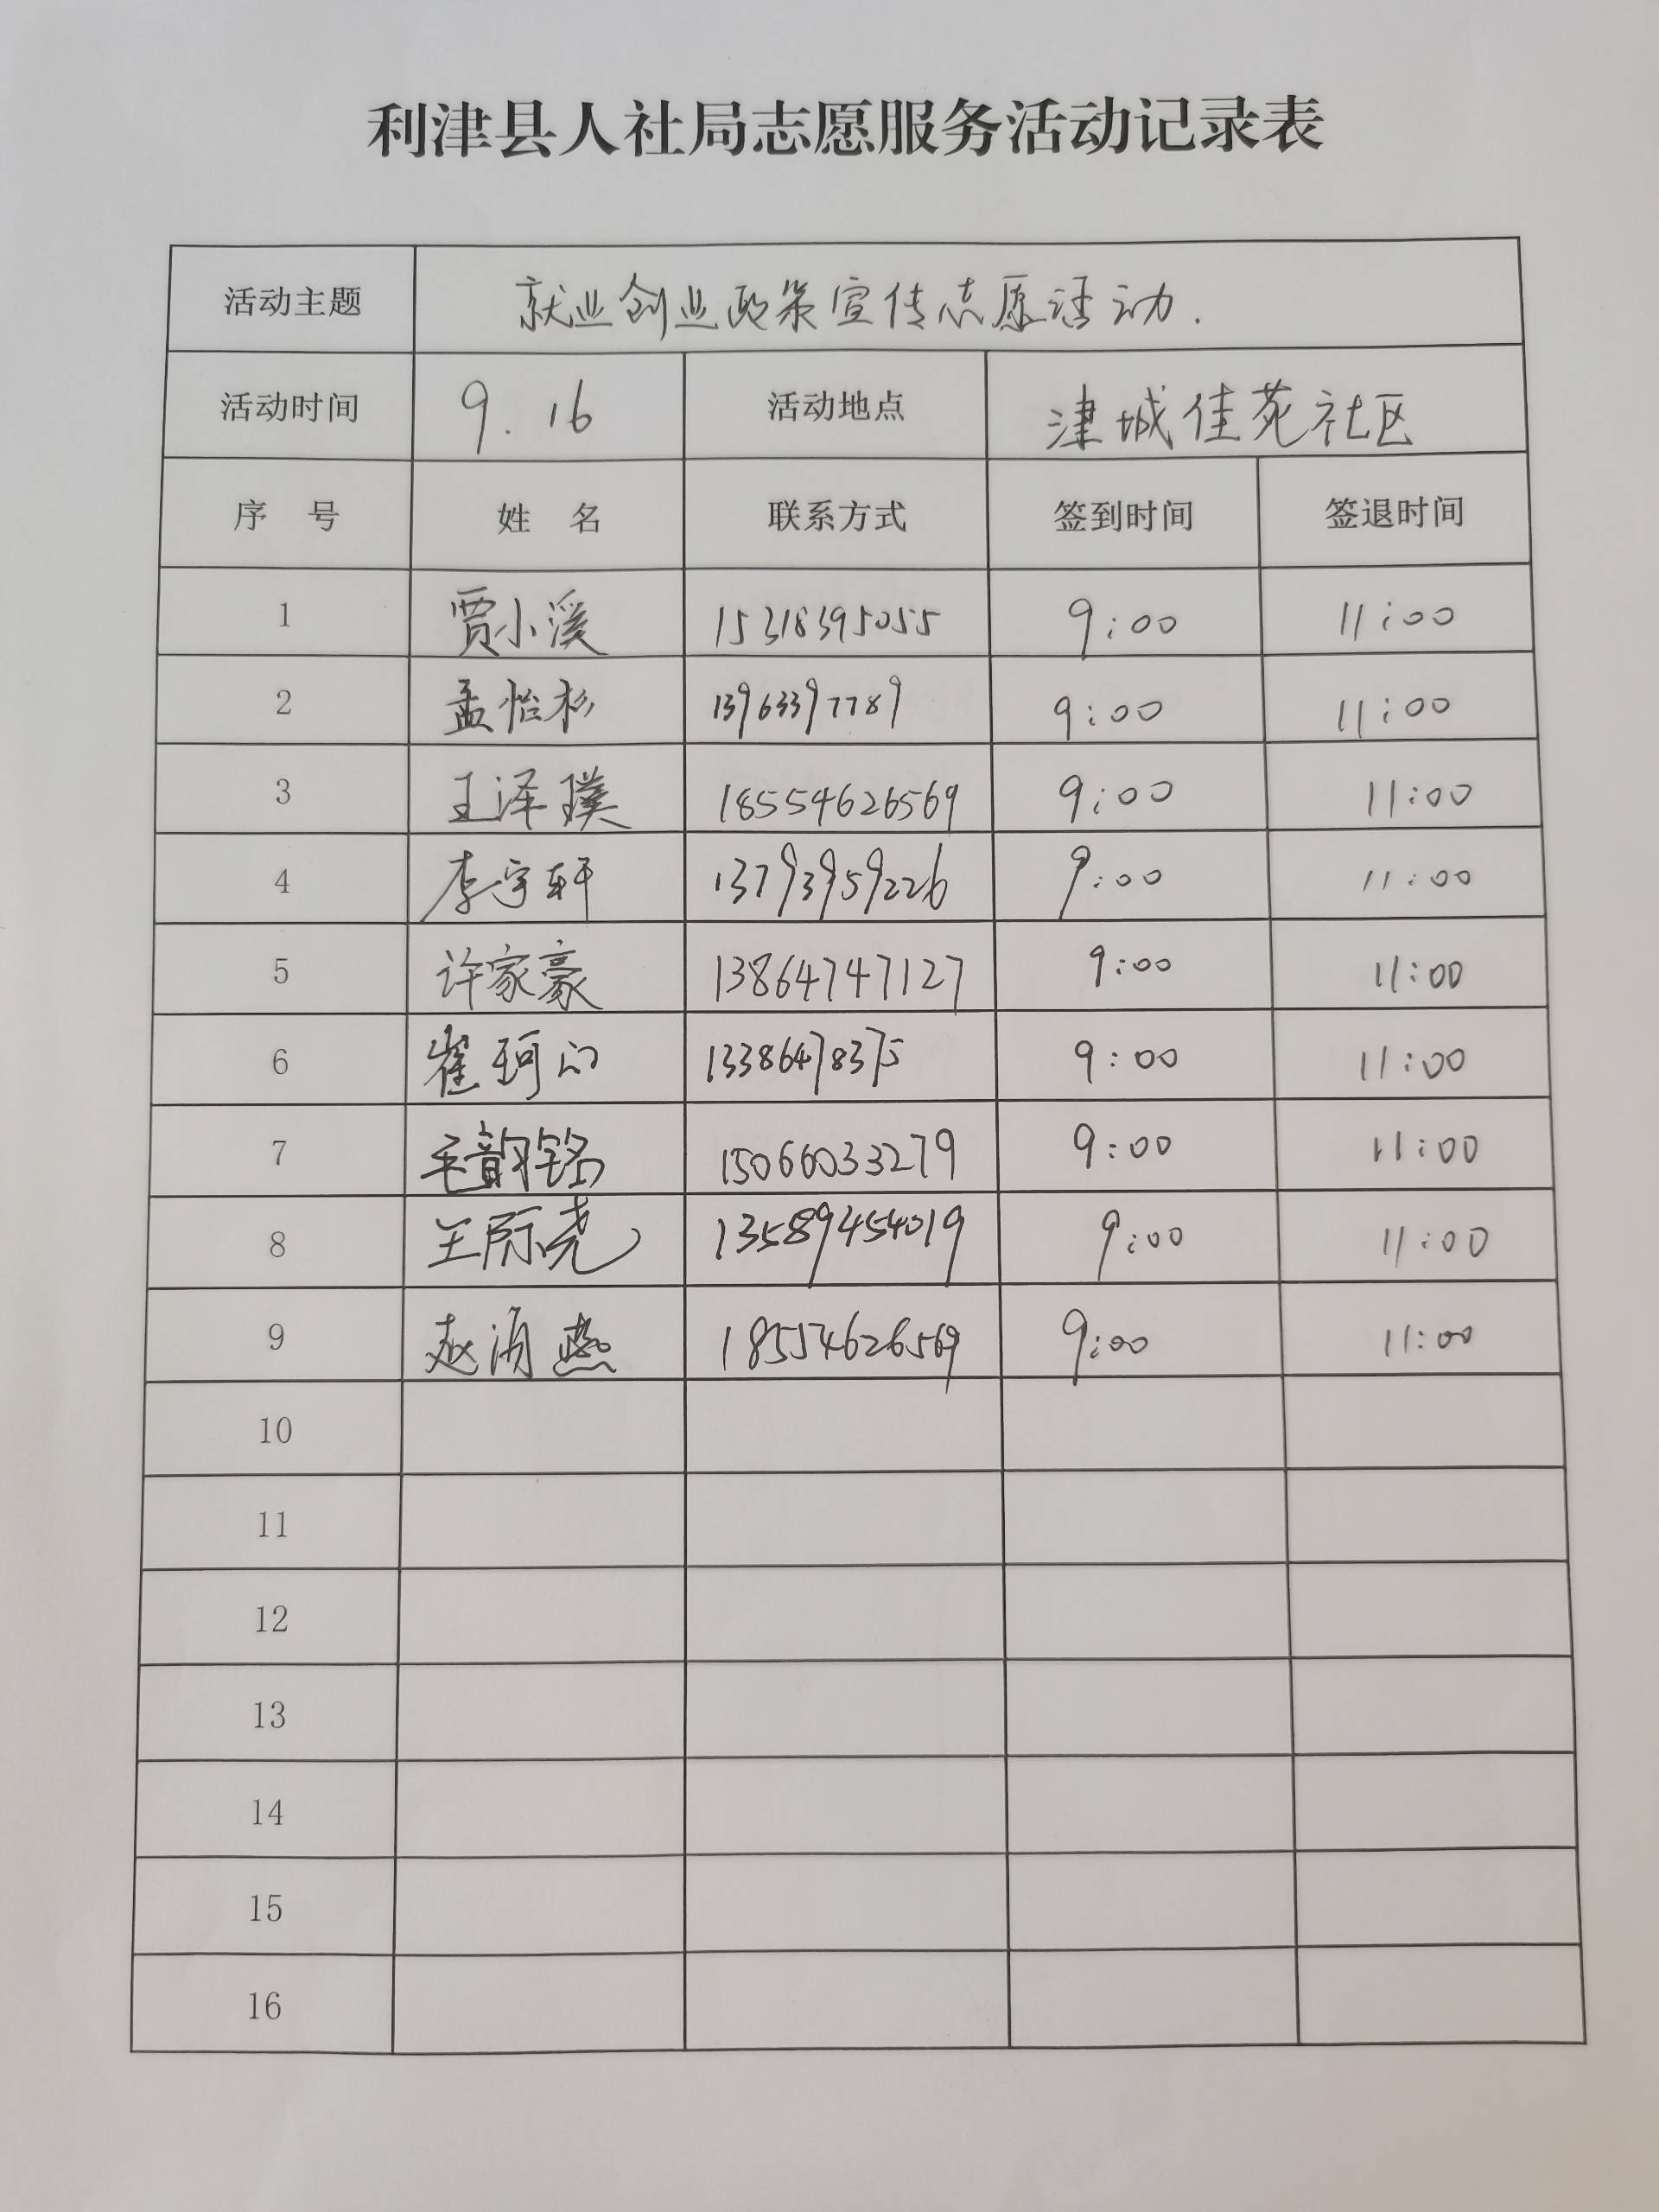 利津县人社局志愿服务活动记录表
活动主题 就业创业政策宣传志愿活动.
活动时间 9.16 活动地点 津城佳苑社区
序 号 姓 名 联系方式 签到时间 签退时间
1 贾小溪 15318395055 9:00 11:00
2 孟怡杉 13963397789 9:00 11:00
3 王泽璞 18554626569 9:00 11:00
4 李宇轩 13793959226 9:00 11:00
5 许家豪 13864747127 9:00 11:00
6 崔珂 13386478375 9:00 11:00
7 毛韵铭 15066033279 9:00 11:00
8 王际尧 13589454019 9:00 11:00
9 赵涓燕 18554626569 9:00 11:00
10
11
12
13
14
15
16